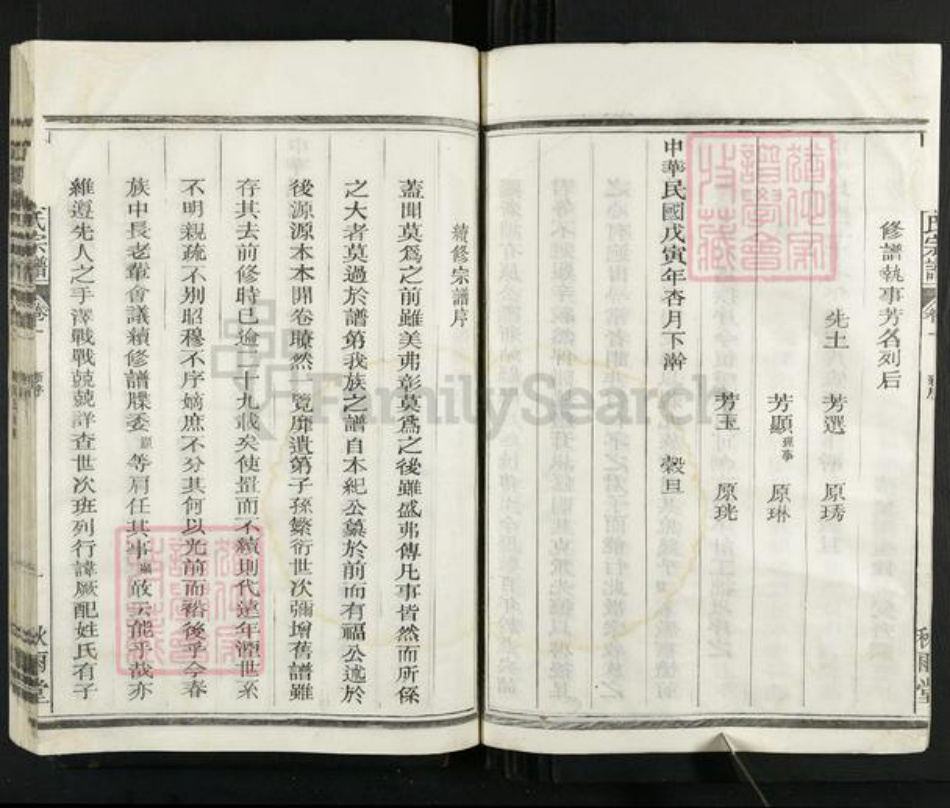 修譜執事芳名列后
先士 芳選 原琇
芳顯理事 原琳
芳玉 原珖
中華民國戊寅年杏月下澣 穀旦
氏宗譜 卷一
秋雨堂
續修宗譜序
蓋聞莫爲之前雖美弗彰莫爲之後雖盛弗傳凡事皆然而所係
之大者莫過於譜第我族之譜自本紀公纂於前而有福公述於
後源源本本開卷瞭然一覽靡遺第子孫繁衍世次彌增舊譜雖
存其去前修時已逾二十九載矣使置而不續則代遠年湮世系
不明親疏不別昭穆不序嫡庶不分其何以光前而裕後乎今春
族中長老輩會議續修譜牒委顯等肩任其事顯敢云能乎哉亦
維遵先人之手澤戰戰兢兢詳查世次班列行諱厥配姓氏有子
氏宗譜 卷一
秋雨堂
FamilySearch